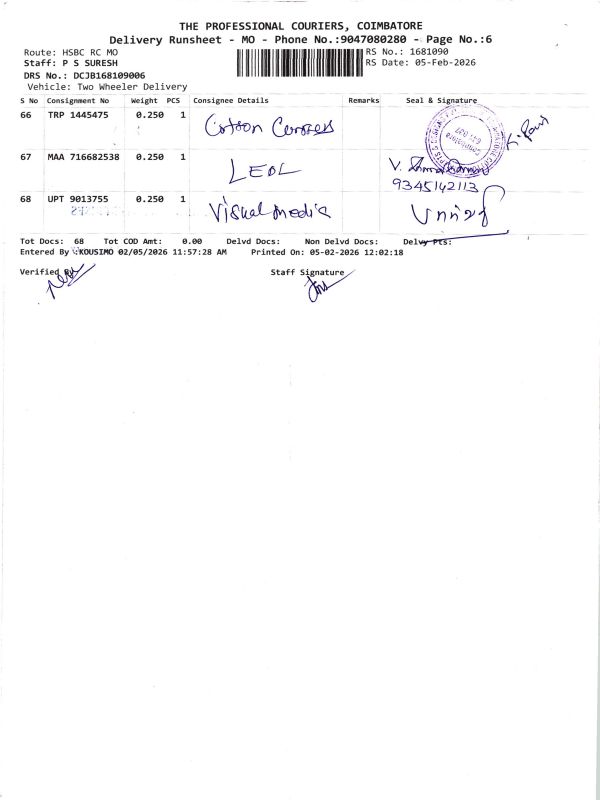 THE PROFESSIONAL COURIERS, COIMBATORE
Delivery Runsheet - MO - Phone No.:9047080280 - Page No.:6
Route: HSBC RC MO
Staff: P S SURESH
DRS No.: DCJB168109006
Vehicle: Two Wheeler Delivery
RS No.: 1681090
RS Date: 05-Feb-2026
S No Consignment No Weight PCS Consignee Details Remarks Seal & Signature
66 TRP 1445475 0.250 1 Cotton
67 MAA 716682538 0.250 1 LEOL V.
9345142113
68 UPT 9013755 0.250 1 Visual media
Tot Docs: 68 Tot COD Amt: 0.00 Delvd Docs: Non Delvd Docs: Delvy Pts:
Entered By :KOUSIMO 02/05/2026 11:57:28 AM Printed On: 05-02-2026 12:02:18
Verified By Staff Signature